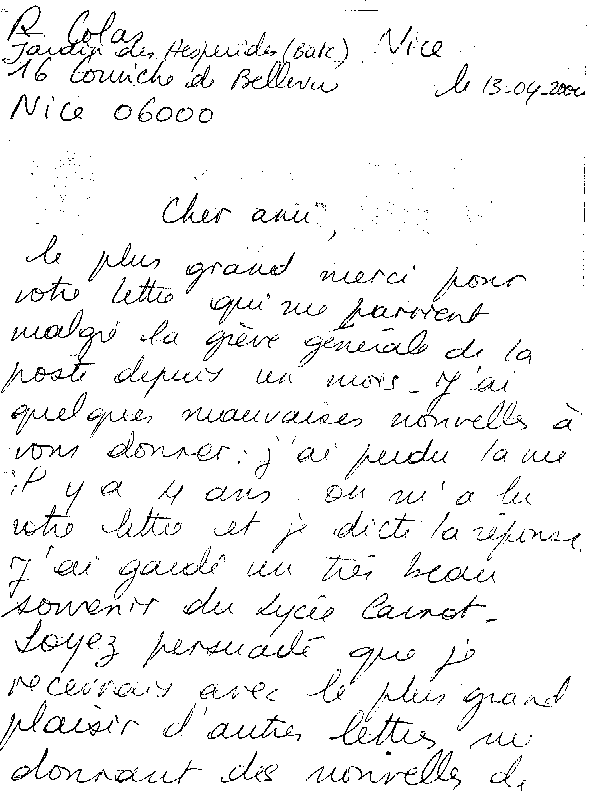 R Colas
Jardin des Hesperides (Bat C) Nice
16 Corniche de Bellevu le 13-04-
Nice 06000
Cher ami,
le plus grand merci pour
votre lettre qui me parvient
malgré la grève générale de la
poste depuis un mois_ J'ai
quelques mauvaises nouvelles à
vous donner: j'ai perdu la vue
il y a 4 ans. on m'a lu
votre lettre et je dicte la réponse.
J'ai gardé un très beau
souvenir du Lycée Carnot_
Soyez persuadé que je
recevrais avec le plus grand
plaisir d'autres lettres me
donnant des nouvelles de